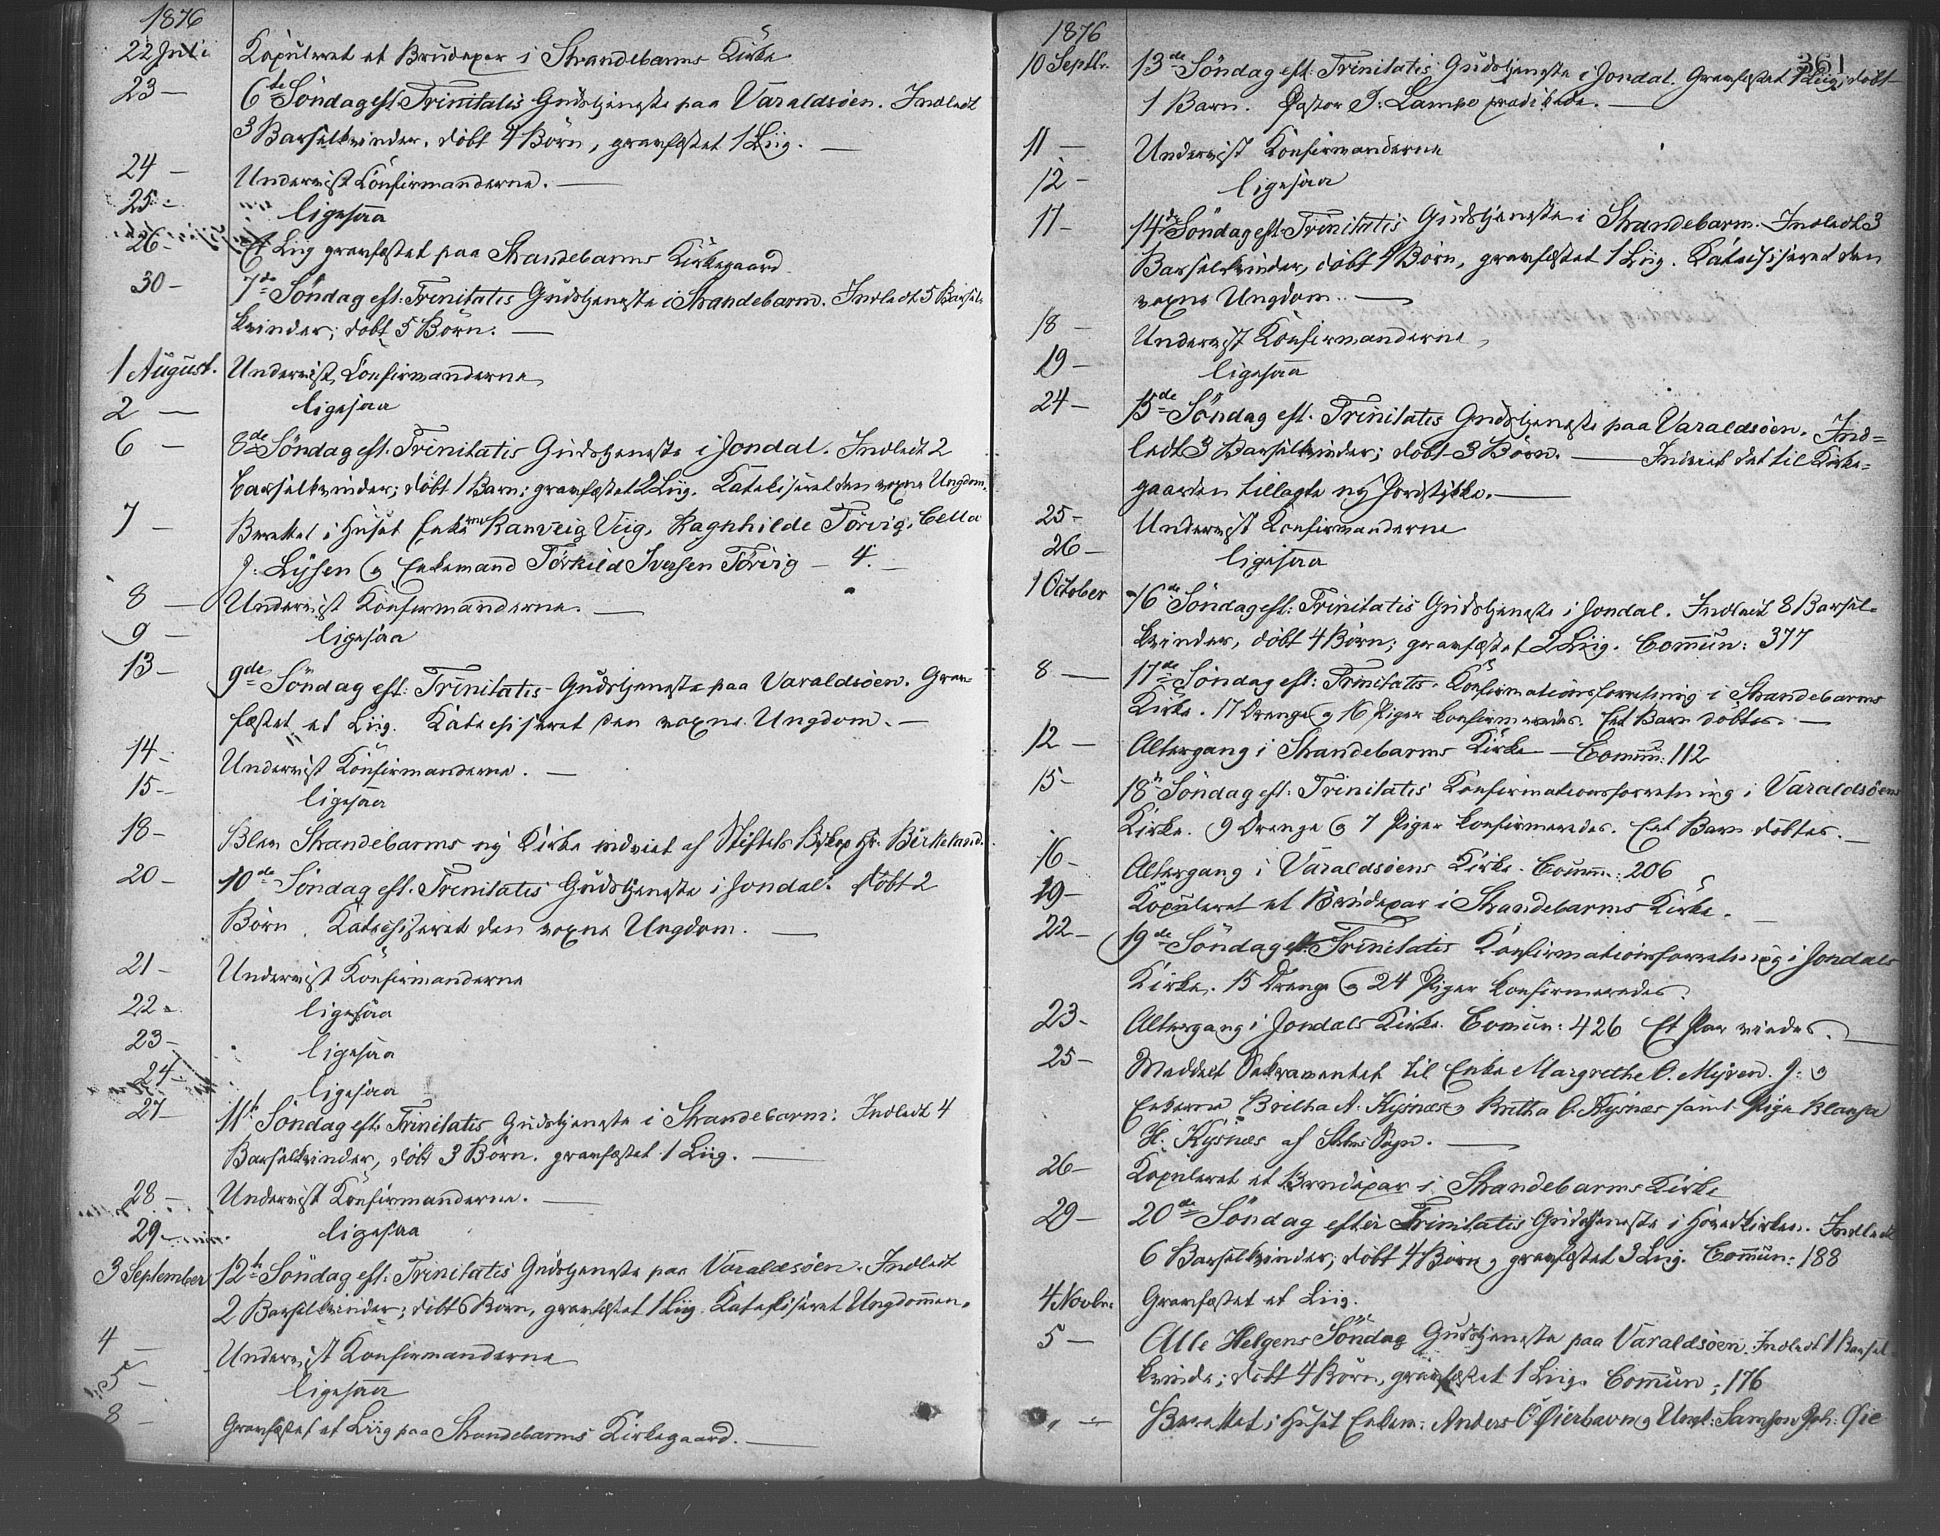 1876
22 Juli Kopuleret et Brudepar i Strandebarms Kirke
23 — 6te Söndag eft. Trinitatis Gudstjeneste paa Varaldsöen. Indledt
3 Barselkvinder, döbt 4 Börn, gravfæstet 1 Liig. —
24 — Underviist Confirmanderne. —
25 - ligesaa
26 - Et Liig gravfæstet paa Strandebarms Kirkegaard
30 - 7de Söndag eft: Trinitatis Gudstjeneste i Strandebarm. Indledt 5 Barsel-
kvinder; döbt 5 Börn. —
1 August. Undervist Confirmanderne
2 — ligesaa
6 — 8de Söndag eft. Trinitatis Gudstjeneste i Jondal. Indledt 2
Barselkvinder; döbt 1 Barn; gravfæstet 2 Liig. Katekiseret den voxne Ungdom.
7 — Berettet i Huset Enkerne Ranveig Vüg, Ragnhilde Törvig, Cella
J: Lysen og Enkemand Törkild Iversen Törvig — 4. —
8 — Undervist Konfirmanderne. —
9 — ligesaa
13 — 9de Söndag eft: Trinitatis Gudstjeneste paa Varaldsöen. Grav-
fæstet et Liig. Katechiseret den voxne Ungdom. —
14 - Undervist Konfirmanderne. —
15 - ligesaa
18 - Blev Strandebarms ny Kirke indviet af Stiftets Biskop Hr. Birkeland.
20 - 10de Söndag eft. Trinitatis Gudstjeneste i Jondal. döbt 2
Börn. Katechiseret den voxne Ungdom. —
21 - Undervist Konfirmanderne
22 - ligesaa
23 - ligesaa
24 - ligesaa
27 - 11te Söndag eft. Trinitatis Gudstjeneste i Strandebarm: Indledt 4
Barselkvinder, döbt 3 Börn. gravfæstet 1 Liig. —
28 - Undervist Konfirmanderne. —
29 - ligesaa
3 September 12te Söndag eft: Trinitatis Gudstjeneste paa Varaldsöen. Indledt
2 Barselkvinder; döbt 6 Börn, gravfæstet 1 Liig. Katekiseret Ungdommen.
4 — Undervist Konfirmanderne
5 - ligesaa
8 - Gravfæstet et Liig paa Strandebarms Kirkegaard. —
1876
361
10 Septbr. 13de Söndag eft: Trinitatis Gudstjeneste i Jondal. Gravfæstet 1 Liig, döbt
1 Barn. Pastor J: Lampe prædikede. —
11 — Undervist Konfirmanderne
12 - ligesaa
17 - 14de Söndag eft. Trinitatis Gudstjeneste i Strandebarm. Indledt 3
Barselkvinder, döbt 4 Börn, gravfæstet 1 Liig. Katechiseret den
voxne Ungdom. —
18 - Undervist Konfirmanderne
19 - ligesaa
24 - 15de Söndag eft. Trinitatis Gudstjeneste paa Varaldsöen. Ind-
ledt 3 Barselkvinder; döbt 3 Börn. — Indviet det til Kirke-
gaarden tillagte ny Jordstykke. —
25 - Undervist Konfirmanderne
26 - ligesaa
1 October 16de Söndag eft: Trinitatis Gudstjeneste i Jondal. Indledt 8 Barsel-
kvinder, döbt 4 Börn; gravfæstet 2 Liig. Commun: 377
8 — 17de Söndag eft: Trinitatis. Konfirmationsforretning i Strandebarms
Kirke. 17 Drenge og 16 Piger konfirmeredes. Eet Barn döbtes. —
12 — Altergang i Strandebarms Kirke — Commun: 112
15 - 18de Söndag eft: Trinitatis Konfirmationsforretning i Varaldsöens
Kirke. 9 Drenge og 7 Piger konfirmeredes. Eet Barn döbtes. —
16 - Altergang i Varaldsöens Kirke. Commun: 206
19 - Kopuleret et Brudepar i Strandebarms Kirke. —
22 - 19de Söndag eft. Trinitatis Konfirmationsforretning i Jondals
Kirke. 15 Drenge og 24 Piger konfirmeredes.
23 - Altergang i Jondals Kirke. Commun: 426 Et Par viedes. —
25 - Meddelt Sakramentet til Enke Margrethe O. Myren. J: og
Enkerne Britha A. Kysnæs og Britha O. Kysnæs samt Pige
H. Kysnæs af Sogn. —
26 - Kopuleret et Brudepar i Strandebarms Kirke
29 - 20de Söndag efter Trinitatis Gudstjeneste i Hovedkirken. Indledt
6 Barselkvinder, döbt 4 Börn, gravfæstet 3 Liig. Commun: 188
4 Novbr. Gravfæstet et Liig.
5 — Alle Helgens Söndag Gudstjeneste paa Varaldsöen. Indledt 1 Barsel-
kvinde; döbt 4 Börn, gravfæstet 1 Liig. Commun: 176
" — Berettet i Huset Enkem: Anders O Øierhavn og Samson Joh: Øie